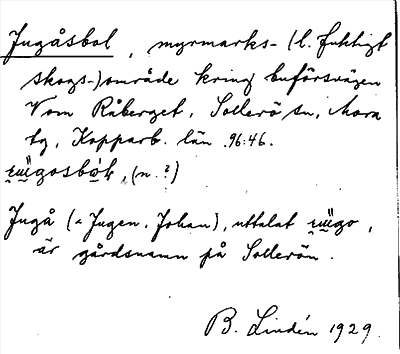 Jugåsbol, myrmarks- (l. fuktigt
skogs-)område kring buförsvägen
V om Råberget, Sollerö sn, Mora
tg, Kopparb. län. 96:46.
(n. ?)
Jugå (< Jugen, Johan), uttalat
är gårdsnamn på Sollerön.
B. Lindén 1929.